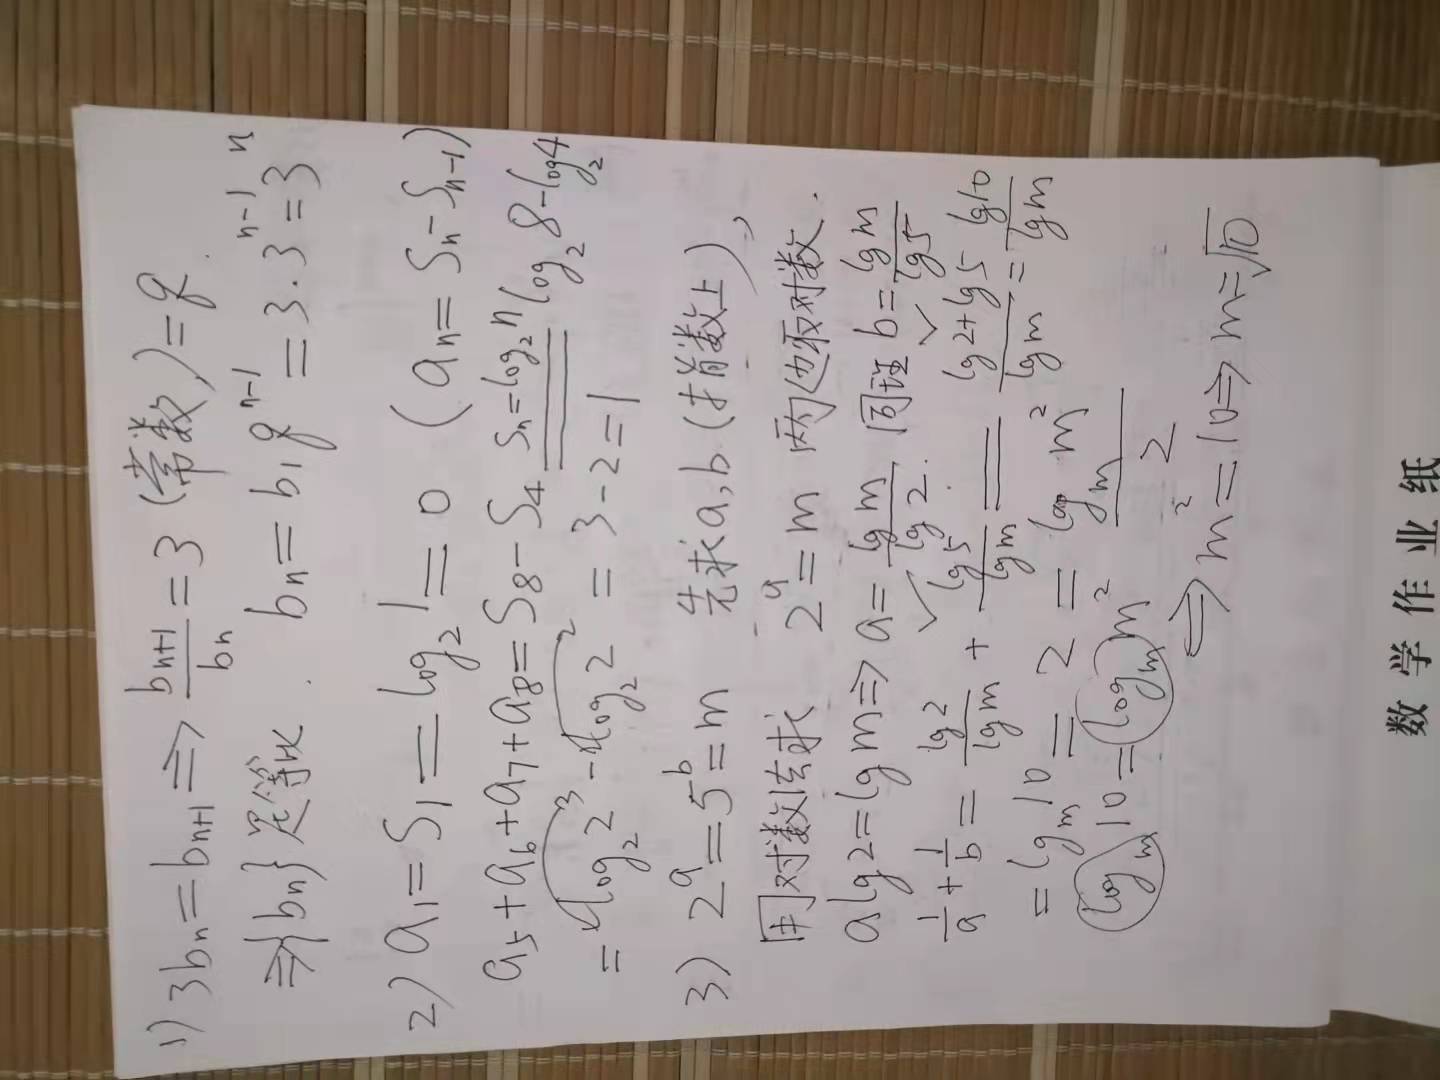 1) 3bₙ=bₙ₊₁⇒ bₙ₊₁/bₙ=3 (常数)=q.
⇒{bₙ}是等比. bₙ=b₁qⁿ⁻¹=3·3ⁿ⁻¹=3ⁿ
2) a₁=S₁=log₂1=0 (aₙ=Sₙ-Sₙ₋₁)
a₅+a₆+a₇+a₈=S₈-S₄ Sₙ=log₂n log₂8-log₂4
=log₂2³-log₂2²=3-2=1
3) 2ᵃ=5ᵇ=m 先求a,b(指数上),
用对数法求 2ᵃ=m 两边取对数.
alg2=lgm⇒ a=lgm/lg2. 同理 b=lgm/lg5
1/a+1/b=lg2/lgm+lg5/lgm=(lg2+lg5)/lgm=lg10/lgm
=lgₘ10=2=logₘm²
logₘ10=logₘm² 2
⇒m²=10⇒m=√10
数学作业纸